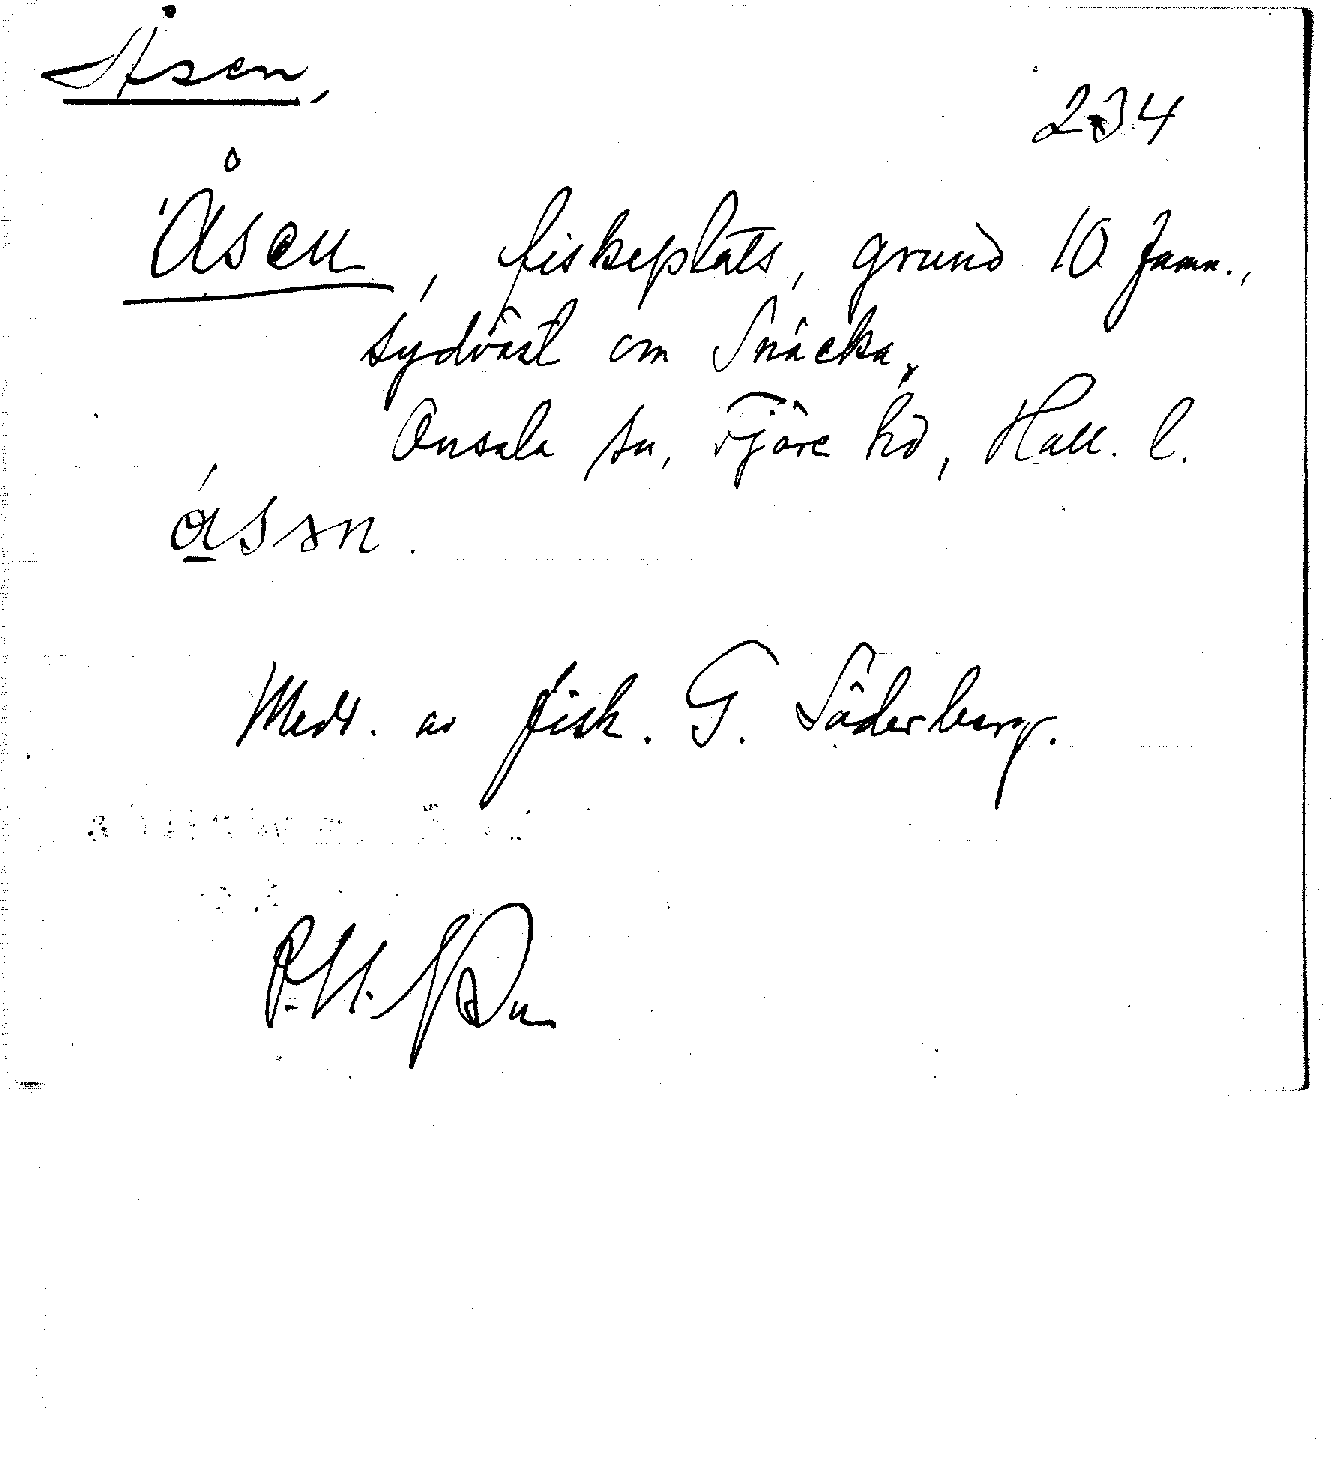 Åsen,
234
Åsen, fiskeplats, grund 10 famn.,
sydväst om Snäcka,
Onsala sn, Fjäre hd, Hall. l.
Medd. av fisk. G. Söderberg.